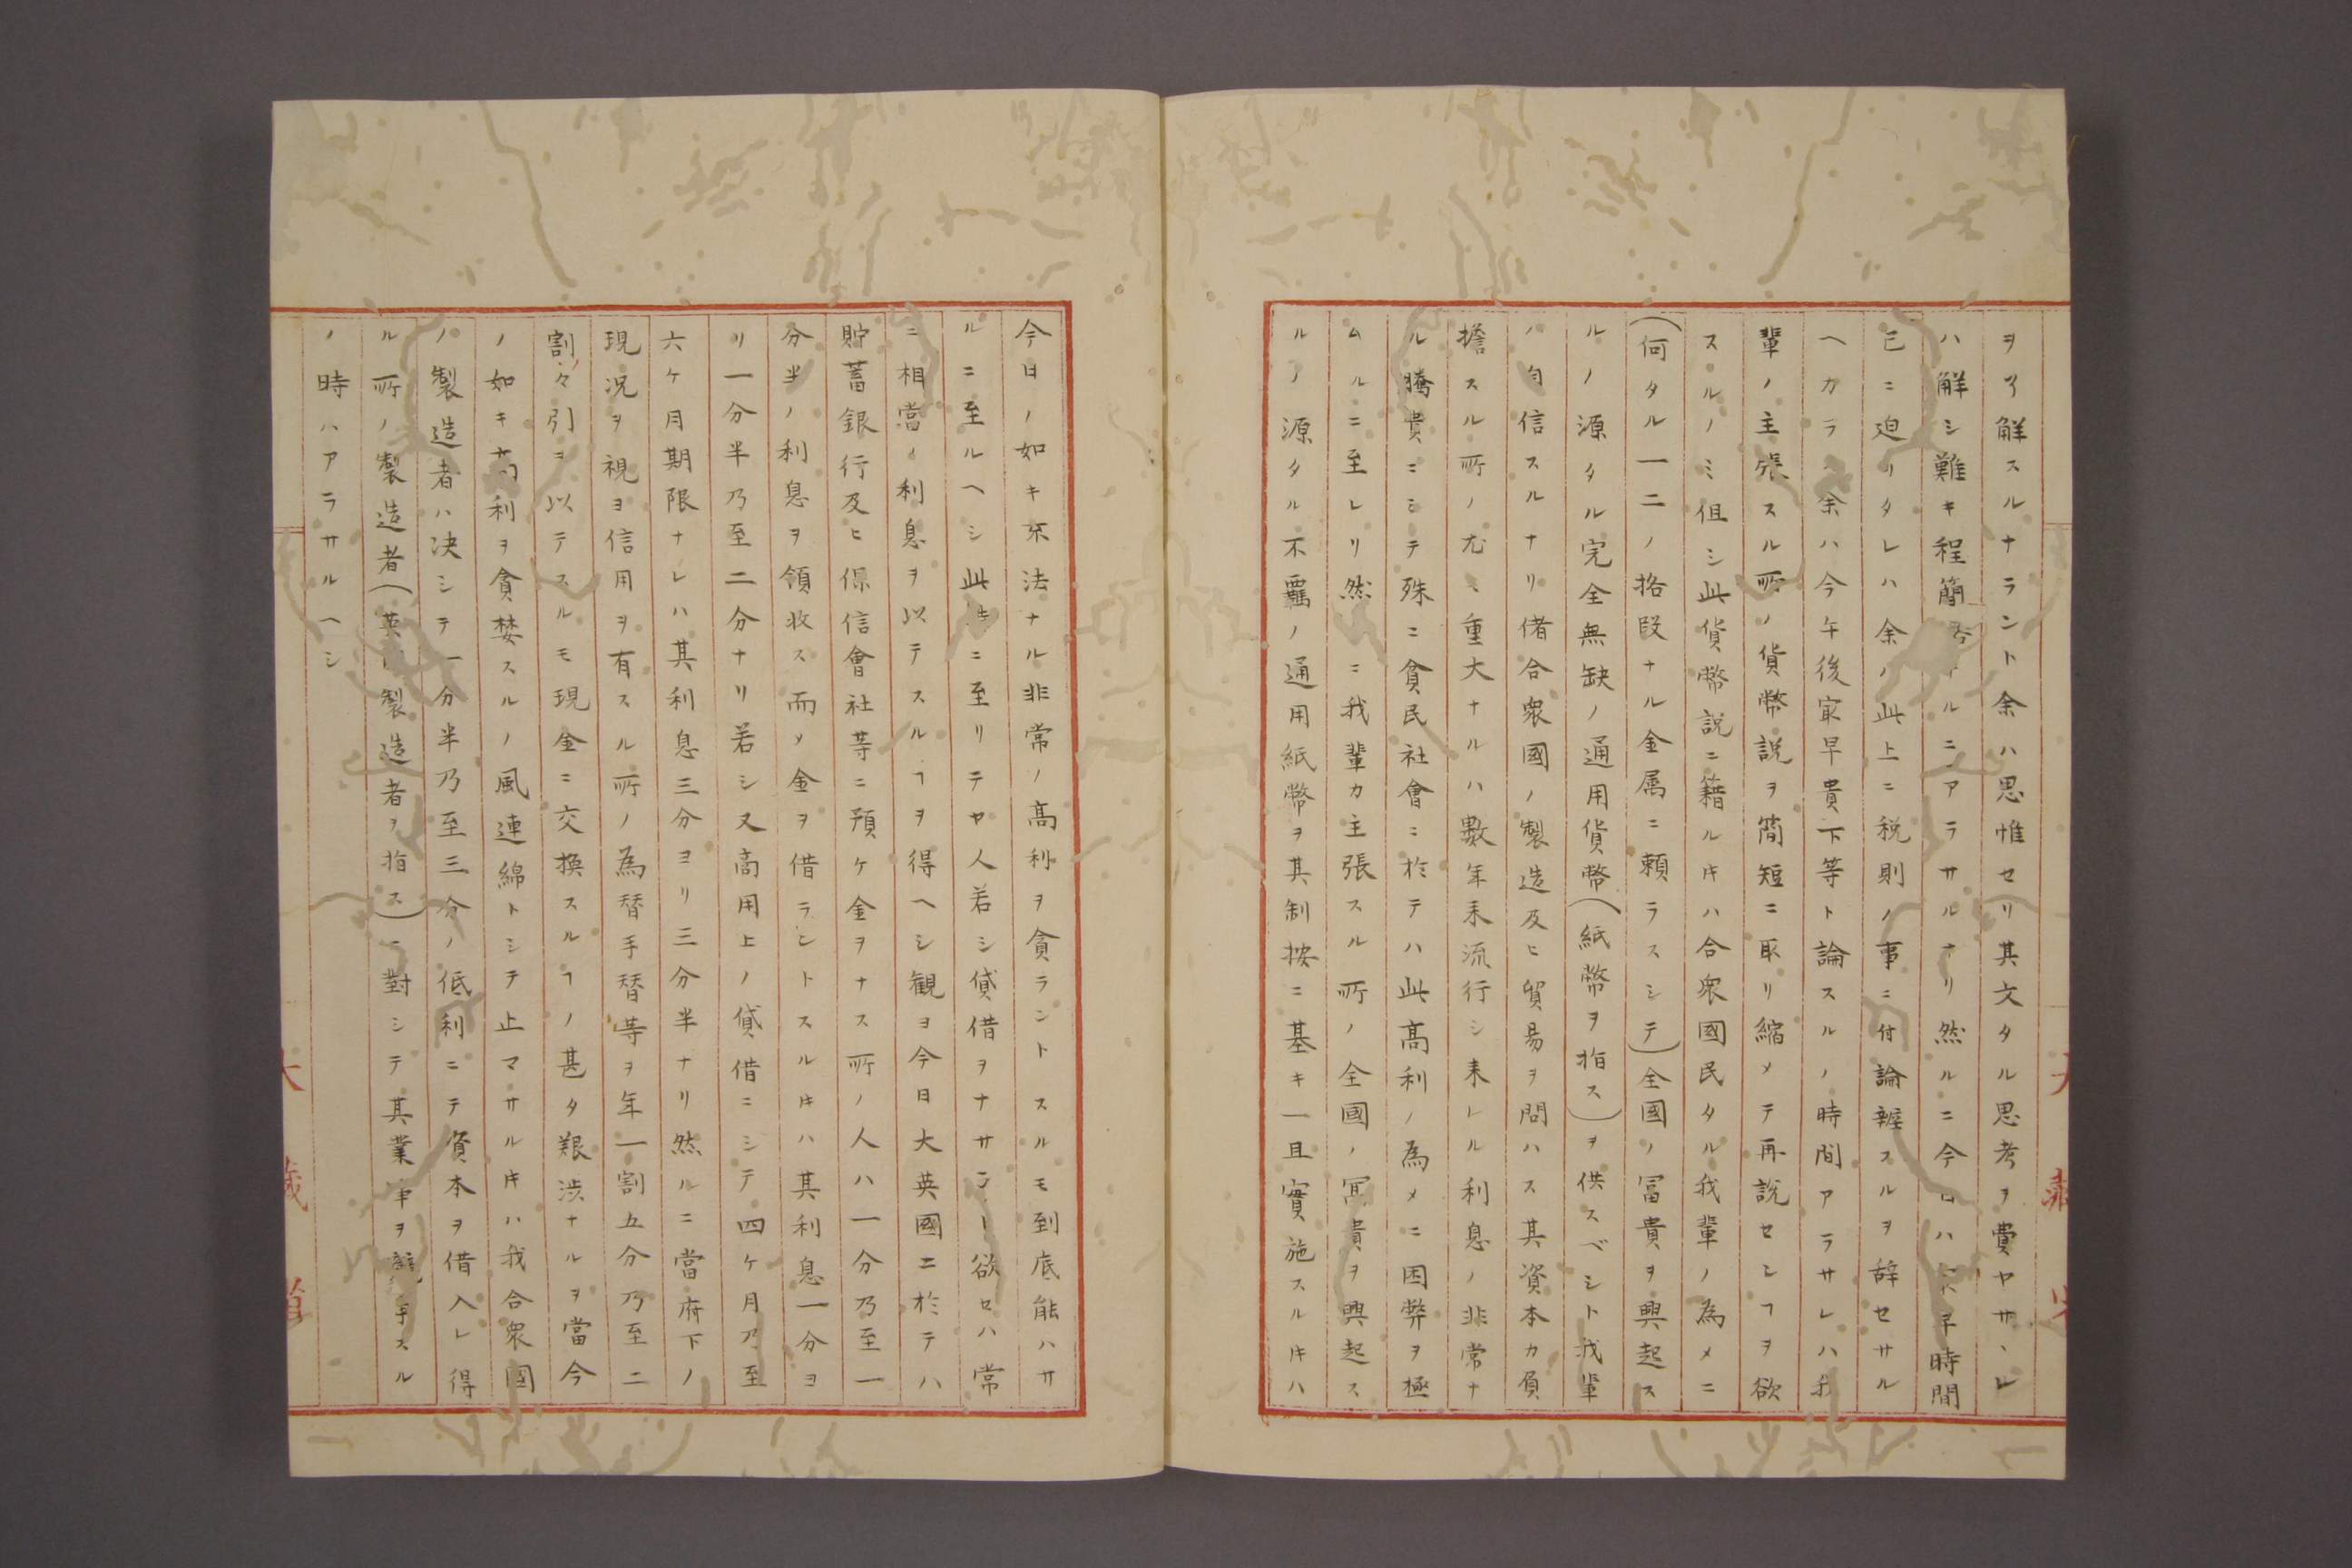 ヲ以解スルナラント余ハ思惟セリ其文タル思考ヲ費ヤサヽレ
ハ解シ難キ程簡ルニアラサルナリ然ルニ今日ハ時間
已ニ迫リタレハ余ノ此上ニ税則ノ事ニ付論辨スルヲ辞セサル
ヘカラス余ハ今午後最早貴下等ト論スルノ時間アラサレハ我
輩ノ主張スル所ノ貨幣説ヲ簡短ニ取リ縮メテ再説センヿヲ欲
スルノミ但シ此貨幣説ニ籍ルㇳキハ合衆國民タル我輩ノ為メニ
(何タル一二ノ格段ナル金属ニ頼ラスシテ)全國ノ冨貴ヲ興起ス
ルノ源タル完全無缺ノ通用貨幣(紙幣ヲ指ス)ヲ供スベシト我輩
ノ自信スルナリ偖合衆國ノ製造及ヒ貿易ヲ問ハス其資本カ負
擔スル所ノ尤ミ重大ナルハ數年来流行シ来レル利息ノ非常ナ
ル騰貴ニシテ殊ニ貧民社會ニ於テハ此高利ノ為メニ困弊ヲ極
ムルニ至レリ然ルニ我輩カ主張スル所ノ全國ノ冨貴ヲ興起ス
ルノ源タル不羈ノ通用紙幣ヲ其制按ニ基キ一旦實施スルㇳキハ
今日ノ如キ不法ナル非常ノ高利ヲ貪ラントスルモ到底能ハサ
ルニ至ルヘシ此ニ至リテヤ人若シ貸借ヲナサント欲セハ常
ニ相當ノ利息ヲ以テスルヿヲ得ヘシ観ヨ今日大英國ニ於テハ
貯蓄銀行及ヒ保信會社等ニ預ケ金ヲナス所ノ人ハ一分乃至一
分半ノ利息ヲ領收ス而メ金ヲ借ラントスルㇳキハ其利息一分ヨ
リ一分半乃至二分ナリ若シ又商用上ノ貸借ニシテ四ケ月乃至
六ケ月期限ナレハ其利息三分ヨリ三分半ナリ然ルニ當府下ノ
現況ヲ視ヨ信用ヲ有スル所ノ為替手替等ヲ年一割五分乃至二
割々引ヲ以テスルモ現金ニ交換スルヿノ甚タ艱渋ナルヲ當今
ノ如キ高利ヲ貪婪スルノ風連綿トシテ止マサルㇳキハ我合衆國
ノ製造者ハ决シテ一分半乃至三分ノ低利ニテ資本ヲ借入レ得
ル所ノ製造者(英國製造者ヲ指ス)ニ對シテ其業事ヲスル
ノ時ハアラサルヘシ